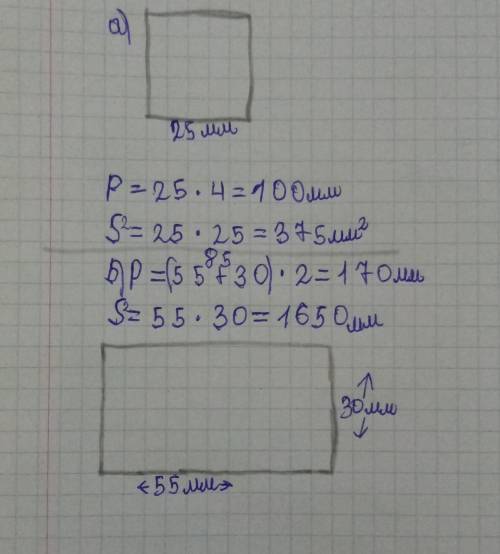 а)
25 мм
P = 25 · 4 = 100 мм
S² = 25 · 25 = 375 мм²
85
б) P = (55 + 30) · 2 = 170 мм
S² = 55 · 30 = 1650 мм
30 мм
55 мм